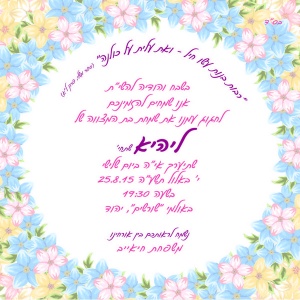 בס"ד
"רבות בנות עשו חיל - ואת עלית על כולנה"
בשבח והודיה להשי"ת
אנו שמחים להזמינכם
לחגוג עמנו את שמחת בת המצווה של
ליהיא שתחי'
שתיערך אי"ה ביום שלישי
י' באלול תשע"ה 25.8.15
בשעה 19:30
באולמי "שורשים", יהוד
נשמח לראותכם בין אורחינו
משפחת חיאייב